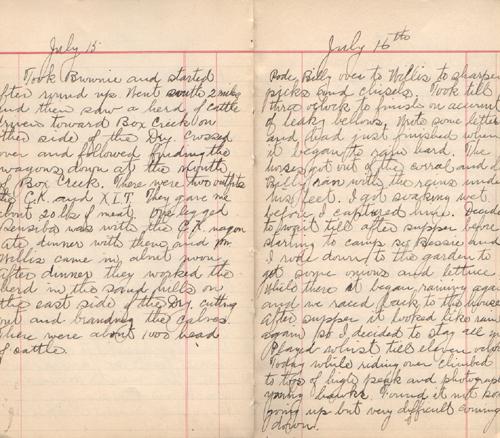 July 15
Took Brownie and started
after round up. Went south 2 miles
and then saw a herd of cattle
driven toward Box Creek on
other side of the Dry. Crossed
over and followed finding the
wagons down at the mouth
of Box Creek. There were two outfits
the C.K. and X.I.T. They gave me
about 20 lbs of meat. One legged
was with the C.K. wagon
ate dinner with them and
Willis came in about noon
After dinner they worked the
herd in the sand hills on
the east side of the Dry, cutting
out and branding the calves.
There were about 1000 head
of cattle.
July 16th
Rode Billy over to Willis to sharpen
picks and chisels. Took till
three oclock to finish on account
of leaky bellows. Wrote some letters
and had just finished when
it began to rain hard. The
horses got out of the corral and
Billy ran with the reins under
his feet. I got soaking wet
before I captured him. Decided
to wait till after supper before
starting to camp so Bessie and
I rode down to the garden to
get some onions and lettuce
While there it began raining again
and we raced back to the house
After supper it looked like rain
again so I decided to stay all
Played whist till eleven oclock
Today while riding over climbed
to top of high peak and photographed
young hawks. Found it not bad
going up but very difficult coming
down.